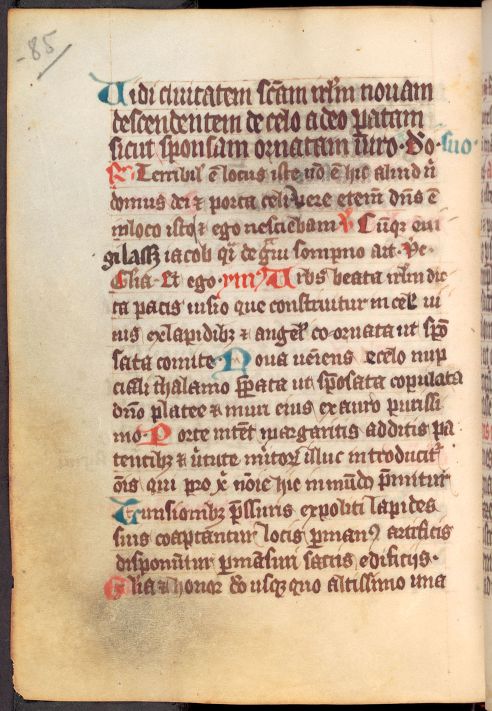 -85
Vidi ciuitatem scam irlm nouam
descendentem de celo a deo patam
sicut sponsam ornatam uiro · Do · suo ·
R Terribil' e locus iste no e hic aliud ni
domus dei & porta celi Vere etem dns e
in loco isto & ego nesciebam V Cuqr eui
gilass; iacob q'i de g'ui sompno ait · Ve ·
Glia · Et ego · ym' Urbs beata irlm dic
ta pacis uisio que construitur in cel' ui
uis ex lapidib; & angel' co ornata ut spo
sata comite · Noua ueniens e celo nup
ciali thalamo spata ut sposata copulata
dno platee & muri eius ex auro purissi
mo · Porte nitet margaritis additis pa
tentib; & uirtute mitor illuc introducit'
ois qui pro x noie hic in mudo pmitur
Tunsionib; pssuris expoliti lapides
suis coaptantur locis p man' artificis
disponutur pmasuri sacris edificijs ·
Glia & honor do usq; quo altissimo una